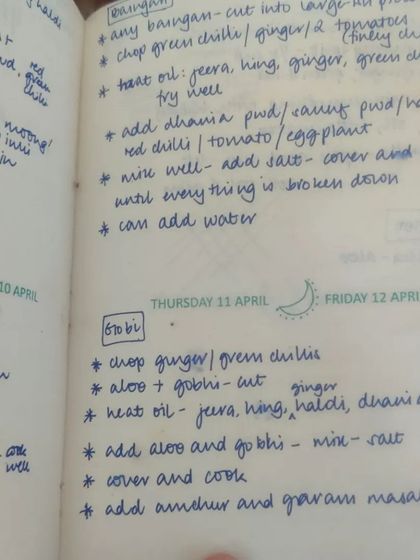 haldi
red
green
chilli
moong
10 APRIL
cook
well
Baingan
* any baingan - cut into large
* chop green chilli / ginger / 2 tomatoes
(finely
* heat oil: jeera, hing, ginger, green
fry well
* add dhania pwd / saunf pwd /
red chilli / tomato / eggplant
* mix well - add salt - cover and
until everything is broken down
* can add water
THURSDAY 11 APRIL
FRIDAY 12 APRI
Gobi
* chop ginger / green chillis
* aloo + gobhi - cut
ginger
* heat oil - jeera, hing, ^ haldi, dhania
* add aloo and gobhi - mix - salt
* cover and cook
* add amchur and garam masal